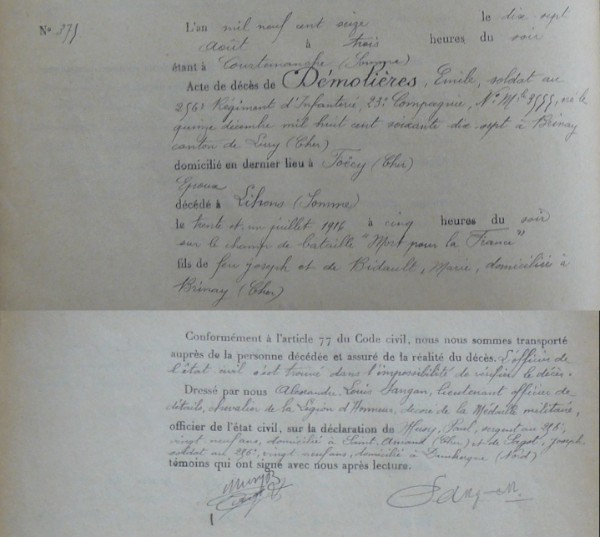 N° 375
L'an mil neuf cent seize le dix-sept
août à trois heures du soir
étant à Courtemanche (Somme)
Acte de décès de Démolières, Emile, soldat au
256e Régiment d'Infanterie, 23e Compagnie, N° Mle 3555, né le
quinze décembre mil huit cent soixante dix-sept à Brinay
canton de Lury (Cher)
domicilié en dernier lieu à Foëcy (Cher)
Epoux
décédé à Lihons (Somme)
le trente et un juillet 1916 à cinq heures du soir
sur le champ de bataille "Mort pour la France"
fils de feu Joseph et de Bidault, Marie, domiciliée à
Brinay (Cher)
Conformément à l'article 77 du Code civil, nous nous sommes transporté
auprès de la personne décédée et assuré de la réalité du décès. L'officier de
l'état civil s'est trouvé dans l'impossibilité de vérifier le décès.
Dressé par nous Alexandre Louis Sangan, lieutenant officier de
détails, chevalier de la Légion d'Honneur, décoré de la Médaille militaire,
officier de l'état civil, sur la déclaration de Paul, sergent au
vingt neuf ans, domicilié à Saint-Amand (Cher) et de Joseph,
soldat au 256e, vingt neuf ans, domicilié à Dunkerque (Nord)
témoins qui ont signé avec nous après lecture.